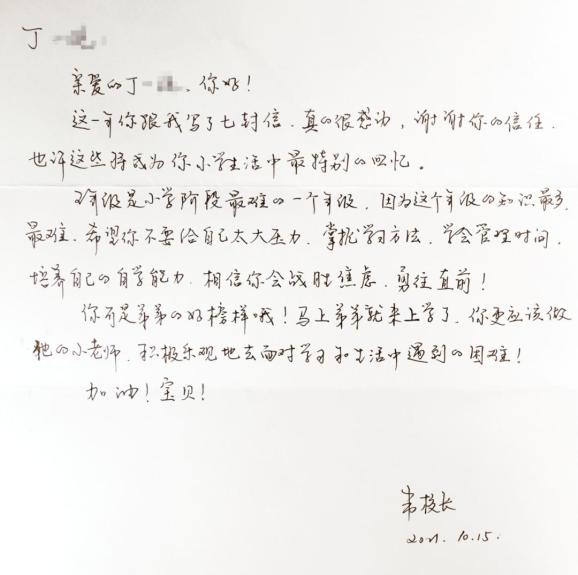 丁一
亲爱的丁一 、你好！
这一年你跟我写了七封信．真的很感动，谢谢你的信任．
也许这些将成为你小学生活中最特别的回忆。
年级是小学阶段最难的一个年级．因为这个年级的知识最多
最难．希望你不要给自己太大压力．掌握学习方法．学会管理时间．
培养自己的自学能力．相信你会战胜焦虑．勇往直前！
你可是弟弟的好榜样哦！马上弟弟就来上学了．你更应该做
他的小老师．积极乐观地去面对学习和生活中遇到的困难！
加油！宝贝！
韦校长
2021.10.15.